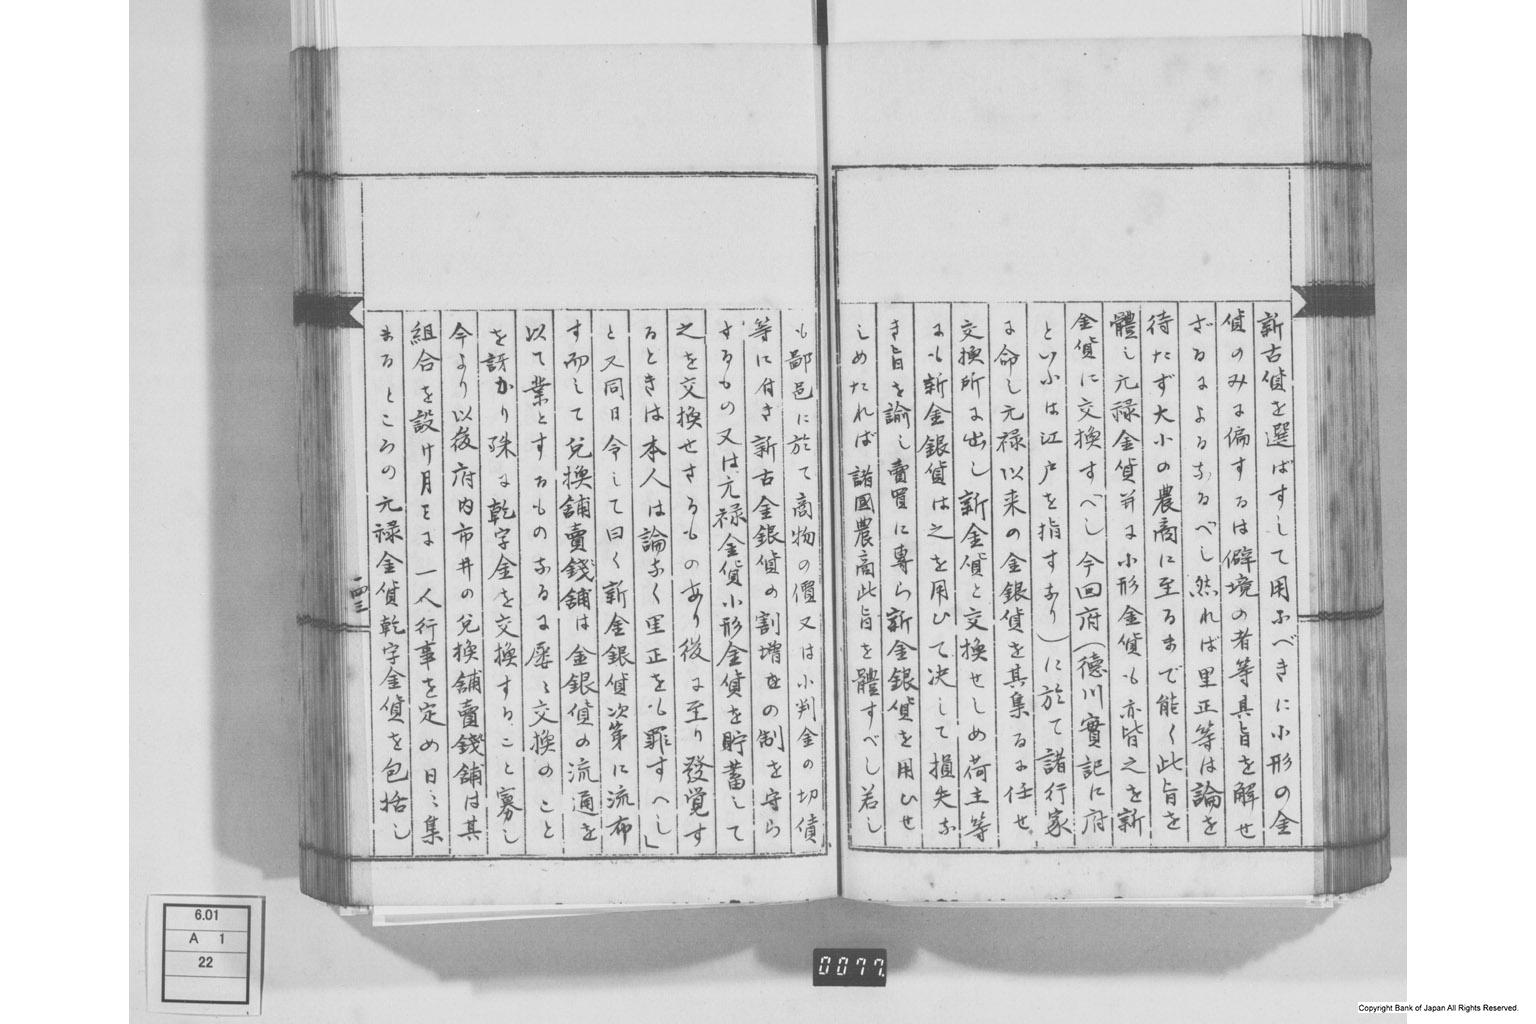 新古貨を選ばすして用ふべきに小形の金
貨のみに偏するは僻境の者等其旨を解せ
ざるによるなるべし然れば里正等は論を
待たず大小の農商に至るまで能く此旨を
體し元禄金貨并に小形金貨も亦皆之を新
金貨に交換すべし今回府(德川實記に府
といふは江戸を指すなり)に於て諸行家
に命し元禄以来の金銀貨を其集るに任せ
交換所に出し新金貨と交換せしめ荷主等
にも新金銀貨は之を用ひて决して損失な
き旨を諭し賣買に專ら新金銀貨を用ひせ
しめたれば諸國農商此旨を體すべし若し
も鄙邑に於て商物の價又は小判金の切賃
等に付き新古金銀貨の割増世の制を守ら
するもの又は元禄金貨小形金貨を貯蓄して
之を交換せさるものあり後に至り發覚す
るときは本人は論なく里正をも罪すへし」
と又同日令して曰く新金銀貨次第に流布
す而して兌換舗賣錢舗は金銀貨の流通を
以て業とするものなるに屡々交換のこと
を訝かり殊に乾字金を交換すること寡し
今より以後府内市井の兌換舗賣錢舗は其
組合を設け月毎に一人行事を定め日々集
まるところの元禄金貨乾字金貨を包括し
6.01
A 1
22
0077
Copyright Bank of Japan All Rights Reserved.